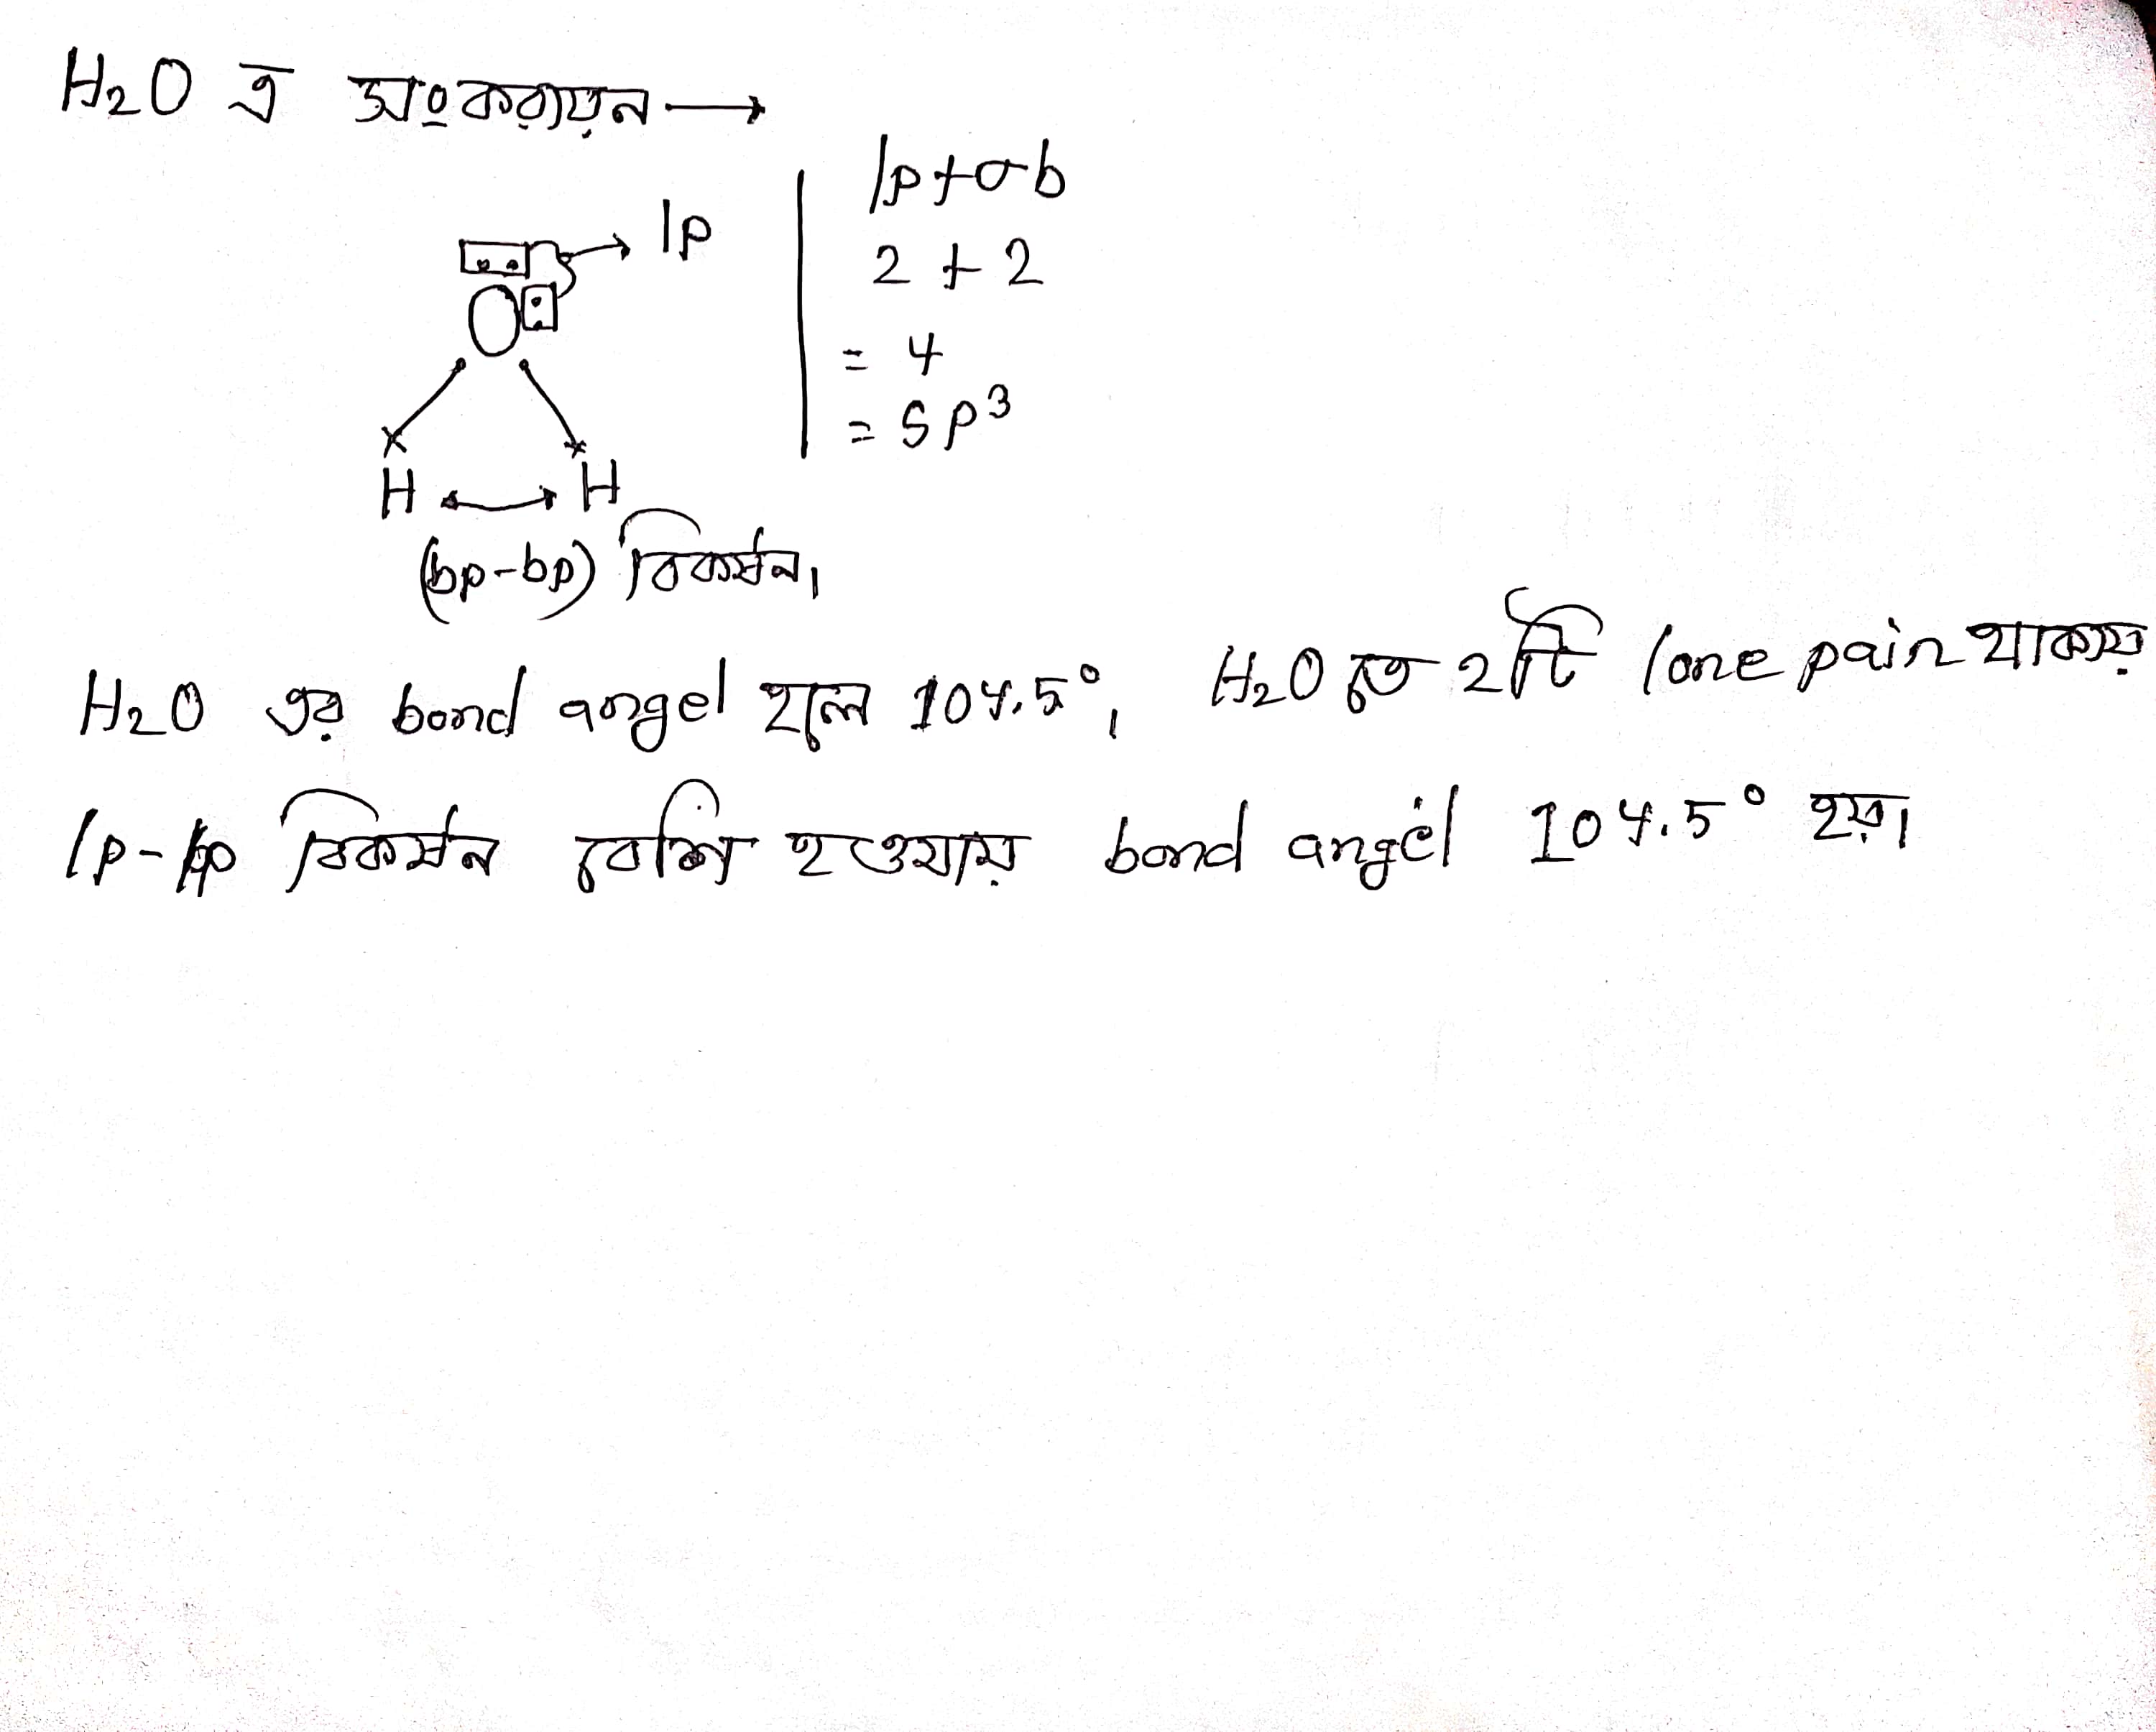 H₂O এ সংকরায়ন →
lp
lp+σb
2 + 2
= 4
= sp³
O
H ↔ H
(bp-bp) বিকর্ষন।
H₂O এর bond angel হলে 104.5°। H₂O তে 2টি lone pair থাকায়
lp-lp বিকর্ষন বেশি হওয়ায় bond angel 104.5° হয়।